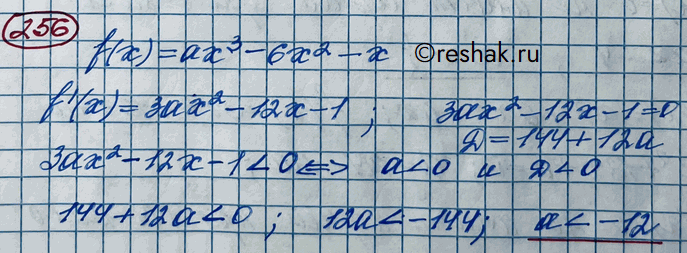 256
f(x)=ax³-6x²-x
©reshak.ru
f'(x)=3ax²-12x-1 ; 3ax²-12x-1=0
D=144+12a
3ax²-12x-1<0 <=> a<0 и D<0
144+12a<0 ; 12a<-144; a<-12